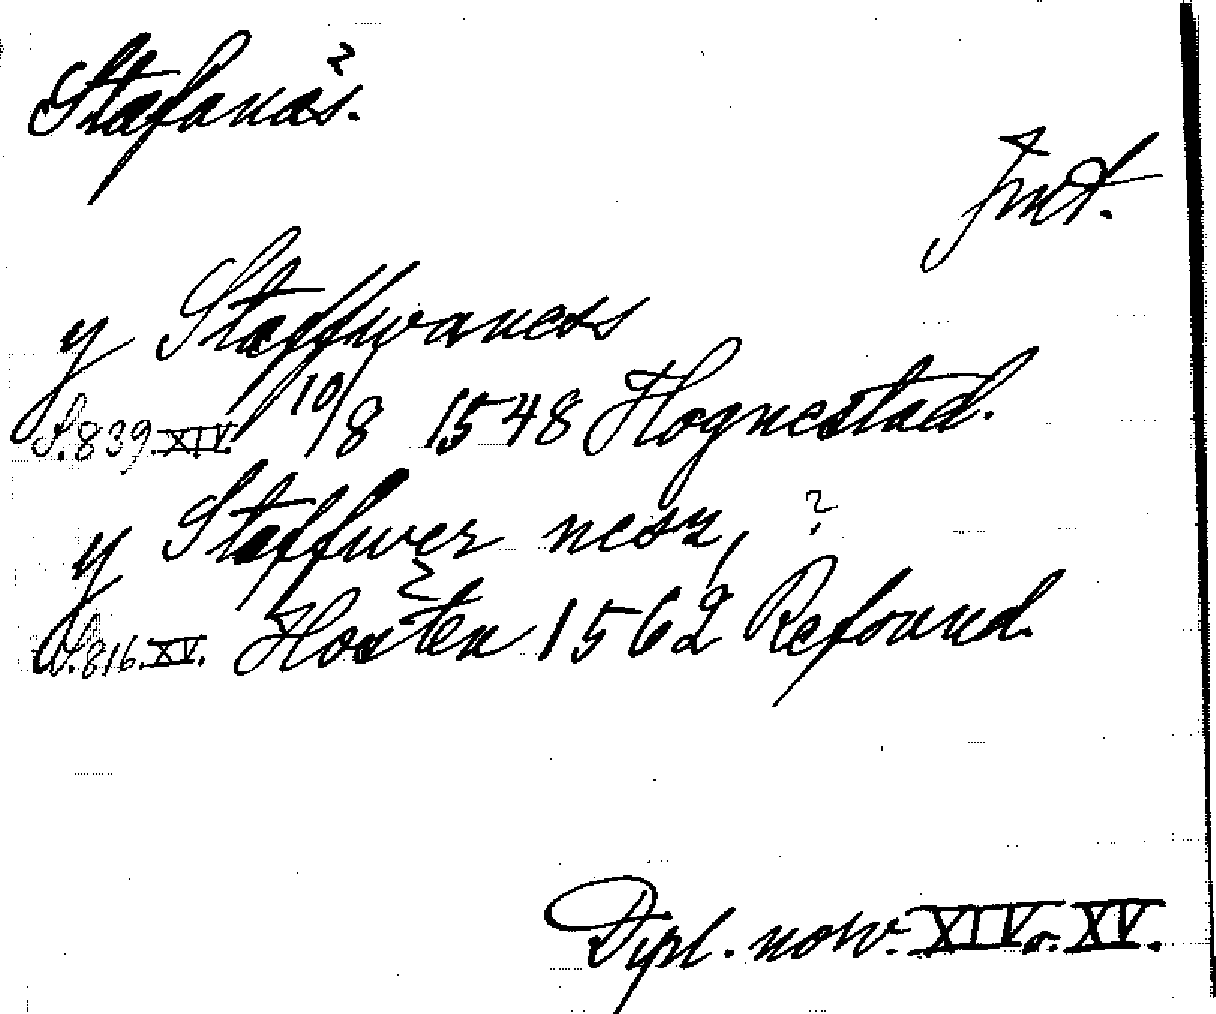 Stafanäs.
Jmt.
y Staffwaness
S.839.XIV. 10/8 1548 Hognestad.
y Staffwer nesz, ?
S.816.XV. Hosten 1562 Refsund.
Dipl. norv. XIV o. XV.